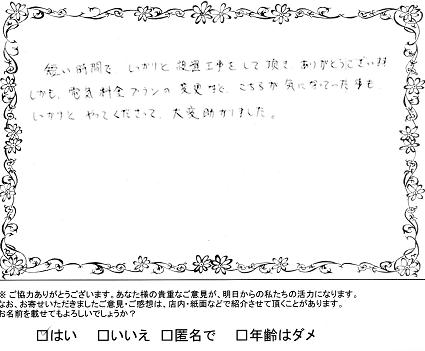 短い時間で しっかりと 設置工事をして頂き ありがとうござい!!
しかも、電気料金プランの 変更など、こちらが 気になっていた事も
しっかりと やってくださって、大変助かりました。
※ ご協力ありがとうございます。あなた様の貴重なご意見が、明日からの私たちの活力になります。
なお、お寄せいただきましたご意見・ご感想は、店内・紙面などで紹介させて頂くことがあります。
お名前を載せてもよろしいでしょうか？
☑はい □いいえ □匿名で □年齢はダメ